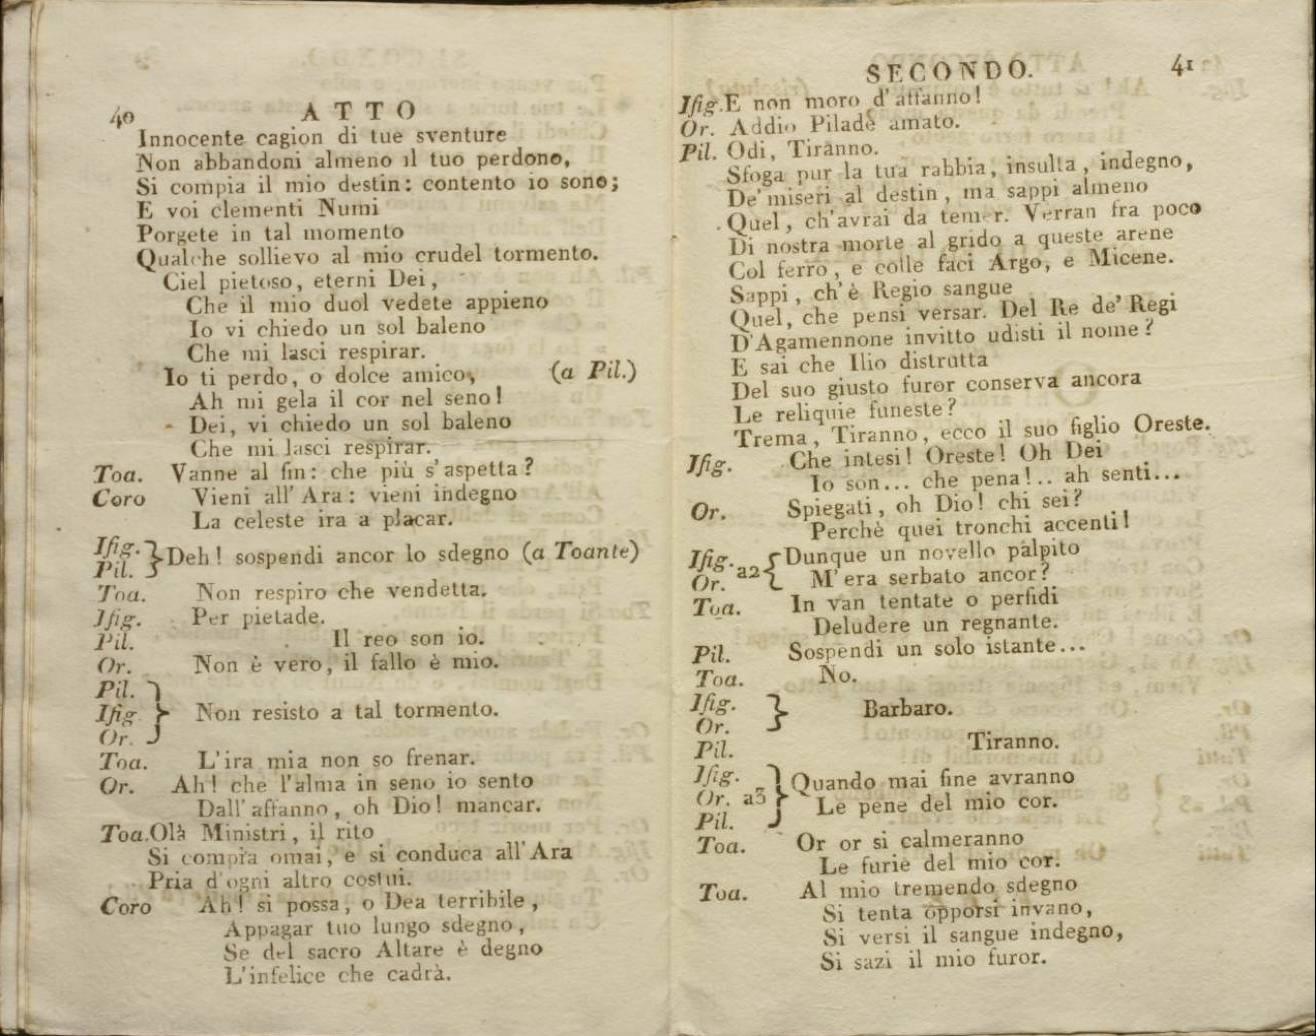 40 ATTO
Innocente cagion di tue sventure
Non abbandoni almeno il tuo perdono,
Si compia il mio destin: contento io sono;
E voi clementi Numi
Porgete in tal momento
Qualche sollievo al mio crudel tormento.
Ciel pietoso, eterni Dei,
Che il mio duol vedete appieno
Io vi chiedo un sol baleno
Che mi lasci respirar.
Io ti perdo, o dolce amico, (a Pil.)
Ah mi gela il cor nel seno!
Dei, vi chiedo un sol baleno
Che mi lasci respirar.
Toa. Vanne al fin: che più s'aspetta?
Coro Vieni all'Ara: vieni indegno
La celeste ira a placar.
Ifig.
Pil. } Deh! sospendi ancor lo sdegno (a Toante)
Toa. Non respiro che vendetta.
Ifig. Per pietade.
Pil. Il reo son io.
Or. Non è vero, il fallo è mio.
Pil.
Ifig } Non resisto a tal tormento.
Or.
Toa. L'ira mia non so frenar.
Or. Ah! che l'alma in seno io sento
Dall'affanno, oh Dio! mancar.
Toa. Olà Ministri, il rito
Si compia omai, e si conduca all'Ara
Pria d'ogni altro costui.
Coro Ah! si possa, o Dea terribile,
Appagar tuo lungo sdegno,
Se del sacro Altare è degno
L'infelice che cadrà.
SECONDO. 41
Ifig. E non moro d'affanno!
Or. Addio Pilade amato.
Pil. Odi, Tiranno.
Sfoga pur la tua rabbia, insulta, indegno,
De'miseri al destin, ma sappi almeno
Quel, ch'avrai da temer. Verran fra poco
Di nostra morte al grido a queste arene
Col ferro, e colle faci Argo, e Micene.
Sappi, ch'è Regio sangue
Quel, che pensi versar. Del Re de' Regi
D'Agamennone invitto udisti il nome?
E sai che Ilio distrutta
Del suo giusto furor conserva ancora
Le reliquie funeste?
Trema, Tiranno, ecco il suo figlio Oreste.
Ifig. Che intesi! Oreste! Oh Dei
Io son... che pena!.. ah senti...
Or. Spiegati, oh Dio! chi sei?
Perchè quei tronchi accenti!
Ifig. a2 { Dunque un novello palpito
Or. M'era serbato ancor?
Toa. In van tentate o perfidi
Deludere un regnante.
Pil. Sospendi un solo istante...
Toa. No.
Ifig. } Barbaro.
Or.
Pil. Tiranno.
Ifig. } Quando mai fine avranno
Or. a3 Le pene del mio cor.
Pil.
Toa. Or or si calmeranno
Le furie del mio cor.
Toa. Al mio tremendo sdegno
Si tenta opporsi invano,
Si versi il sangue indegno,
Si sazi il mio furor.